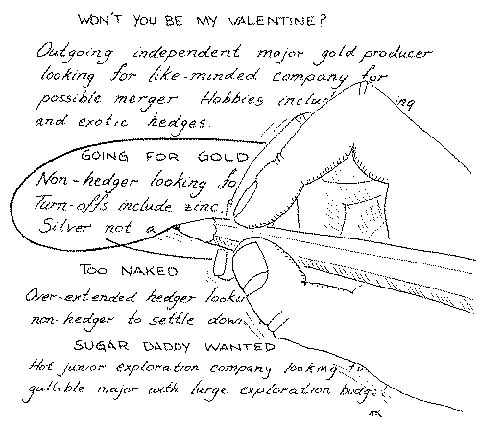 WON'T YOU BE MY VALENTINE?
Outgoing independent major gold producer
looking for like-minded company for
possible merger Hobbies
and exotic hedges.
GOING FOR GOLD
Non-hedger looking
Turn-offs include zinc.
Silver not a
TOO NAKED
Over-extended hedger
non-hedger to settle down
SUGAR DADDY WANTED
Hot junior exploration company looking
gullible major with large exploration budget.